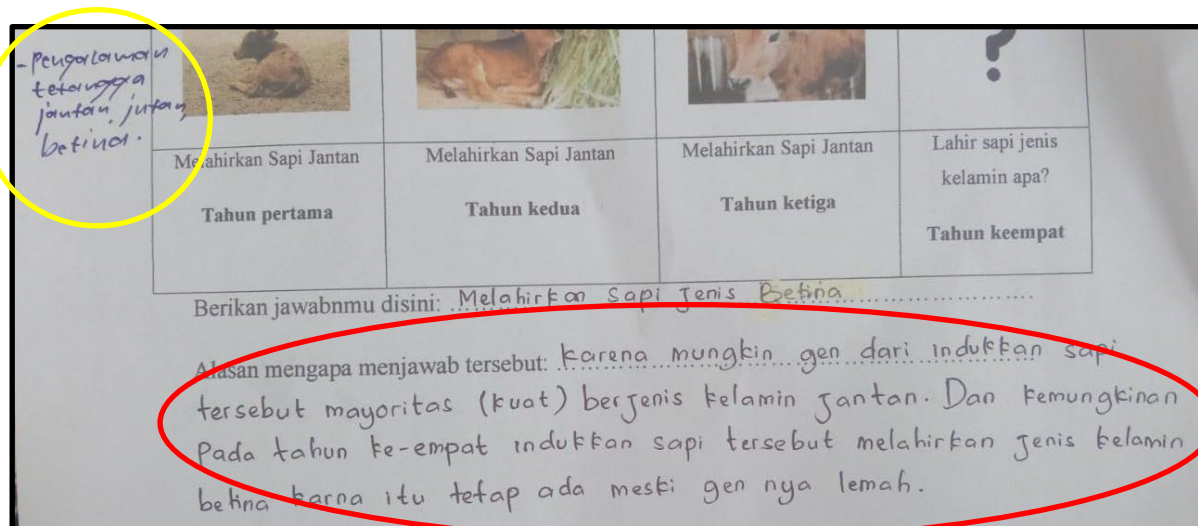 -Pengalaman
tetangga
jantan, jutan,
betina.
?
Melahirkan Sapi Jantan
Tahun pertama
Melahirkan Sapi Jantan
Tahun kedua
Melahirkan Sapi Jantan
Tahun ketiga
Lahir sapi jenis
kelamin apa?
Tahun keempat
Berikan jawabnmu disini: Melahirkan Sapi Jenis Betina
Alasan mengapa menjawab tersebut: karena mungkin gen dari indukkan sapi
tersebut mayoritas (kuat) berjenis kelamin Jantan. Dan kemungkinan
Pada tahun ke-empat indukkan sapi tersebut melahirkan Jenis kelamin
betina karna itu tetap ada meski gen nya lemah.